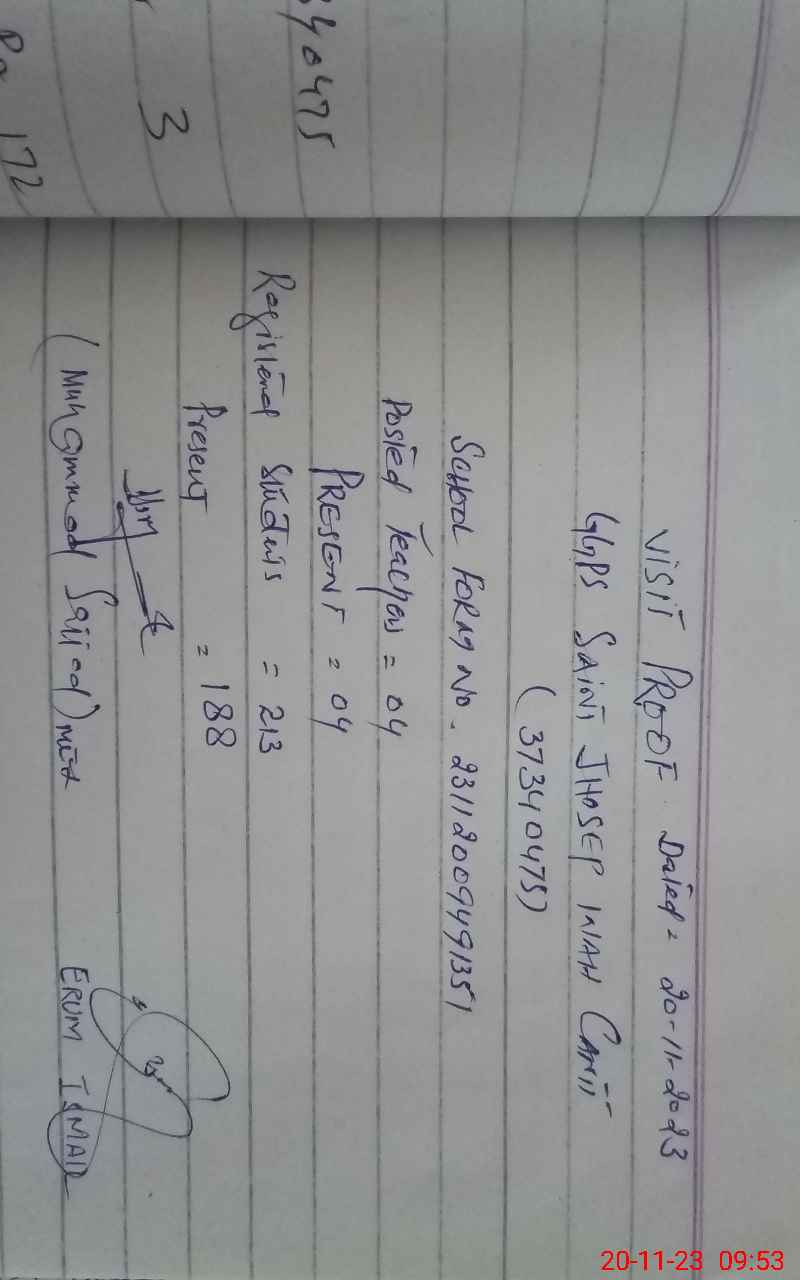 340475
3
172
VISIT PROOF Dated = 20-11-2023
GGPS SAINT JHOSEP WAH CANTT
(37340475)
School FORM No. 23112009491351
Posted Teachers = 04
PRESENT = 04
Registered Students = 213
Present = 188
(Muhammad Saeed) MEA
ERUM ISMAIL
20-11-23 09:53